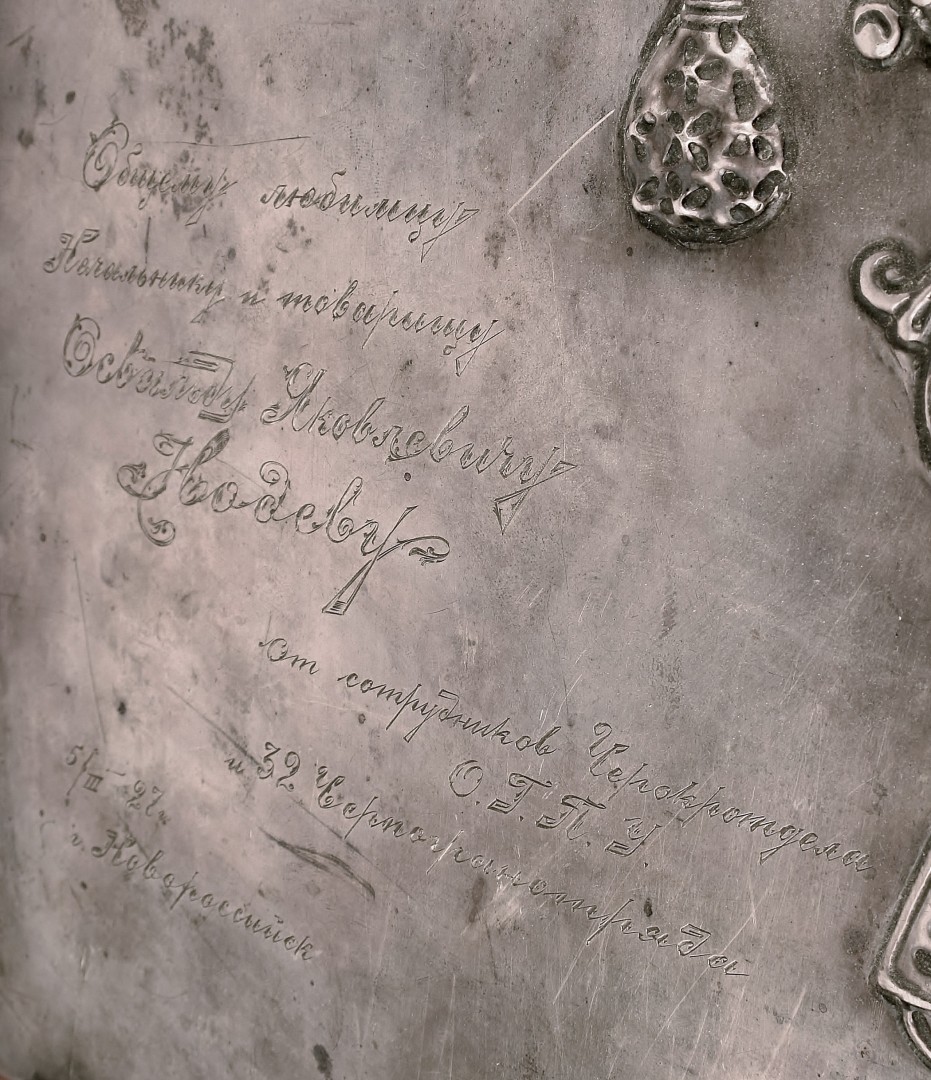 Общему любимцу
Начальнику и товарищу
Освальду Яковлевичу
Нодеву
от сотрудников Черокротдела
О.Г.П.У.
и 32 Черпогранотряда
5/III 27 г.
г. Новороссийск